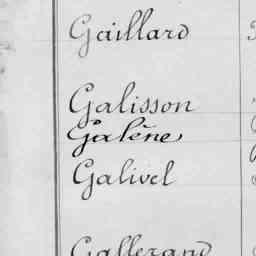 Gaillard
Galisson
Galène
Galivel
Gallerand